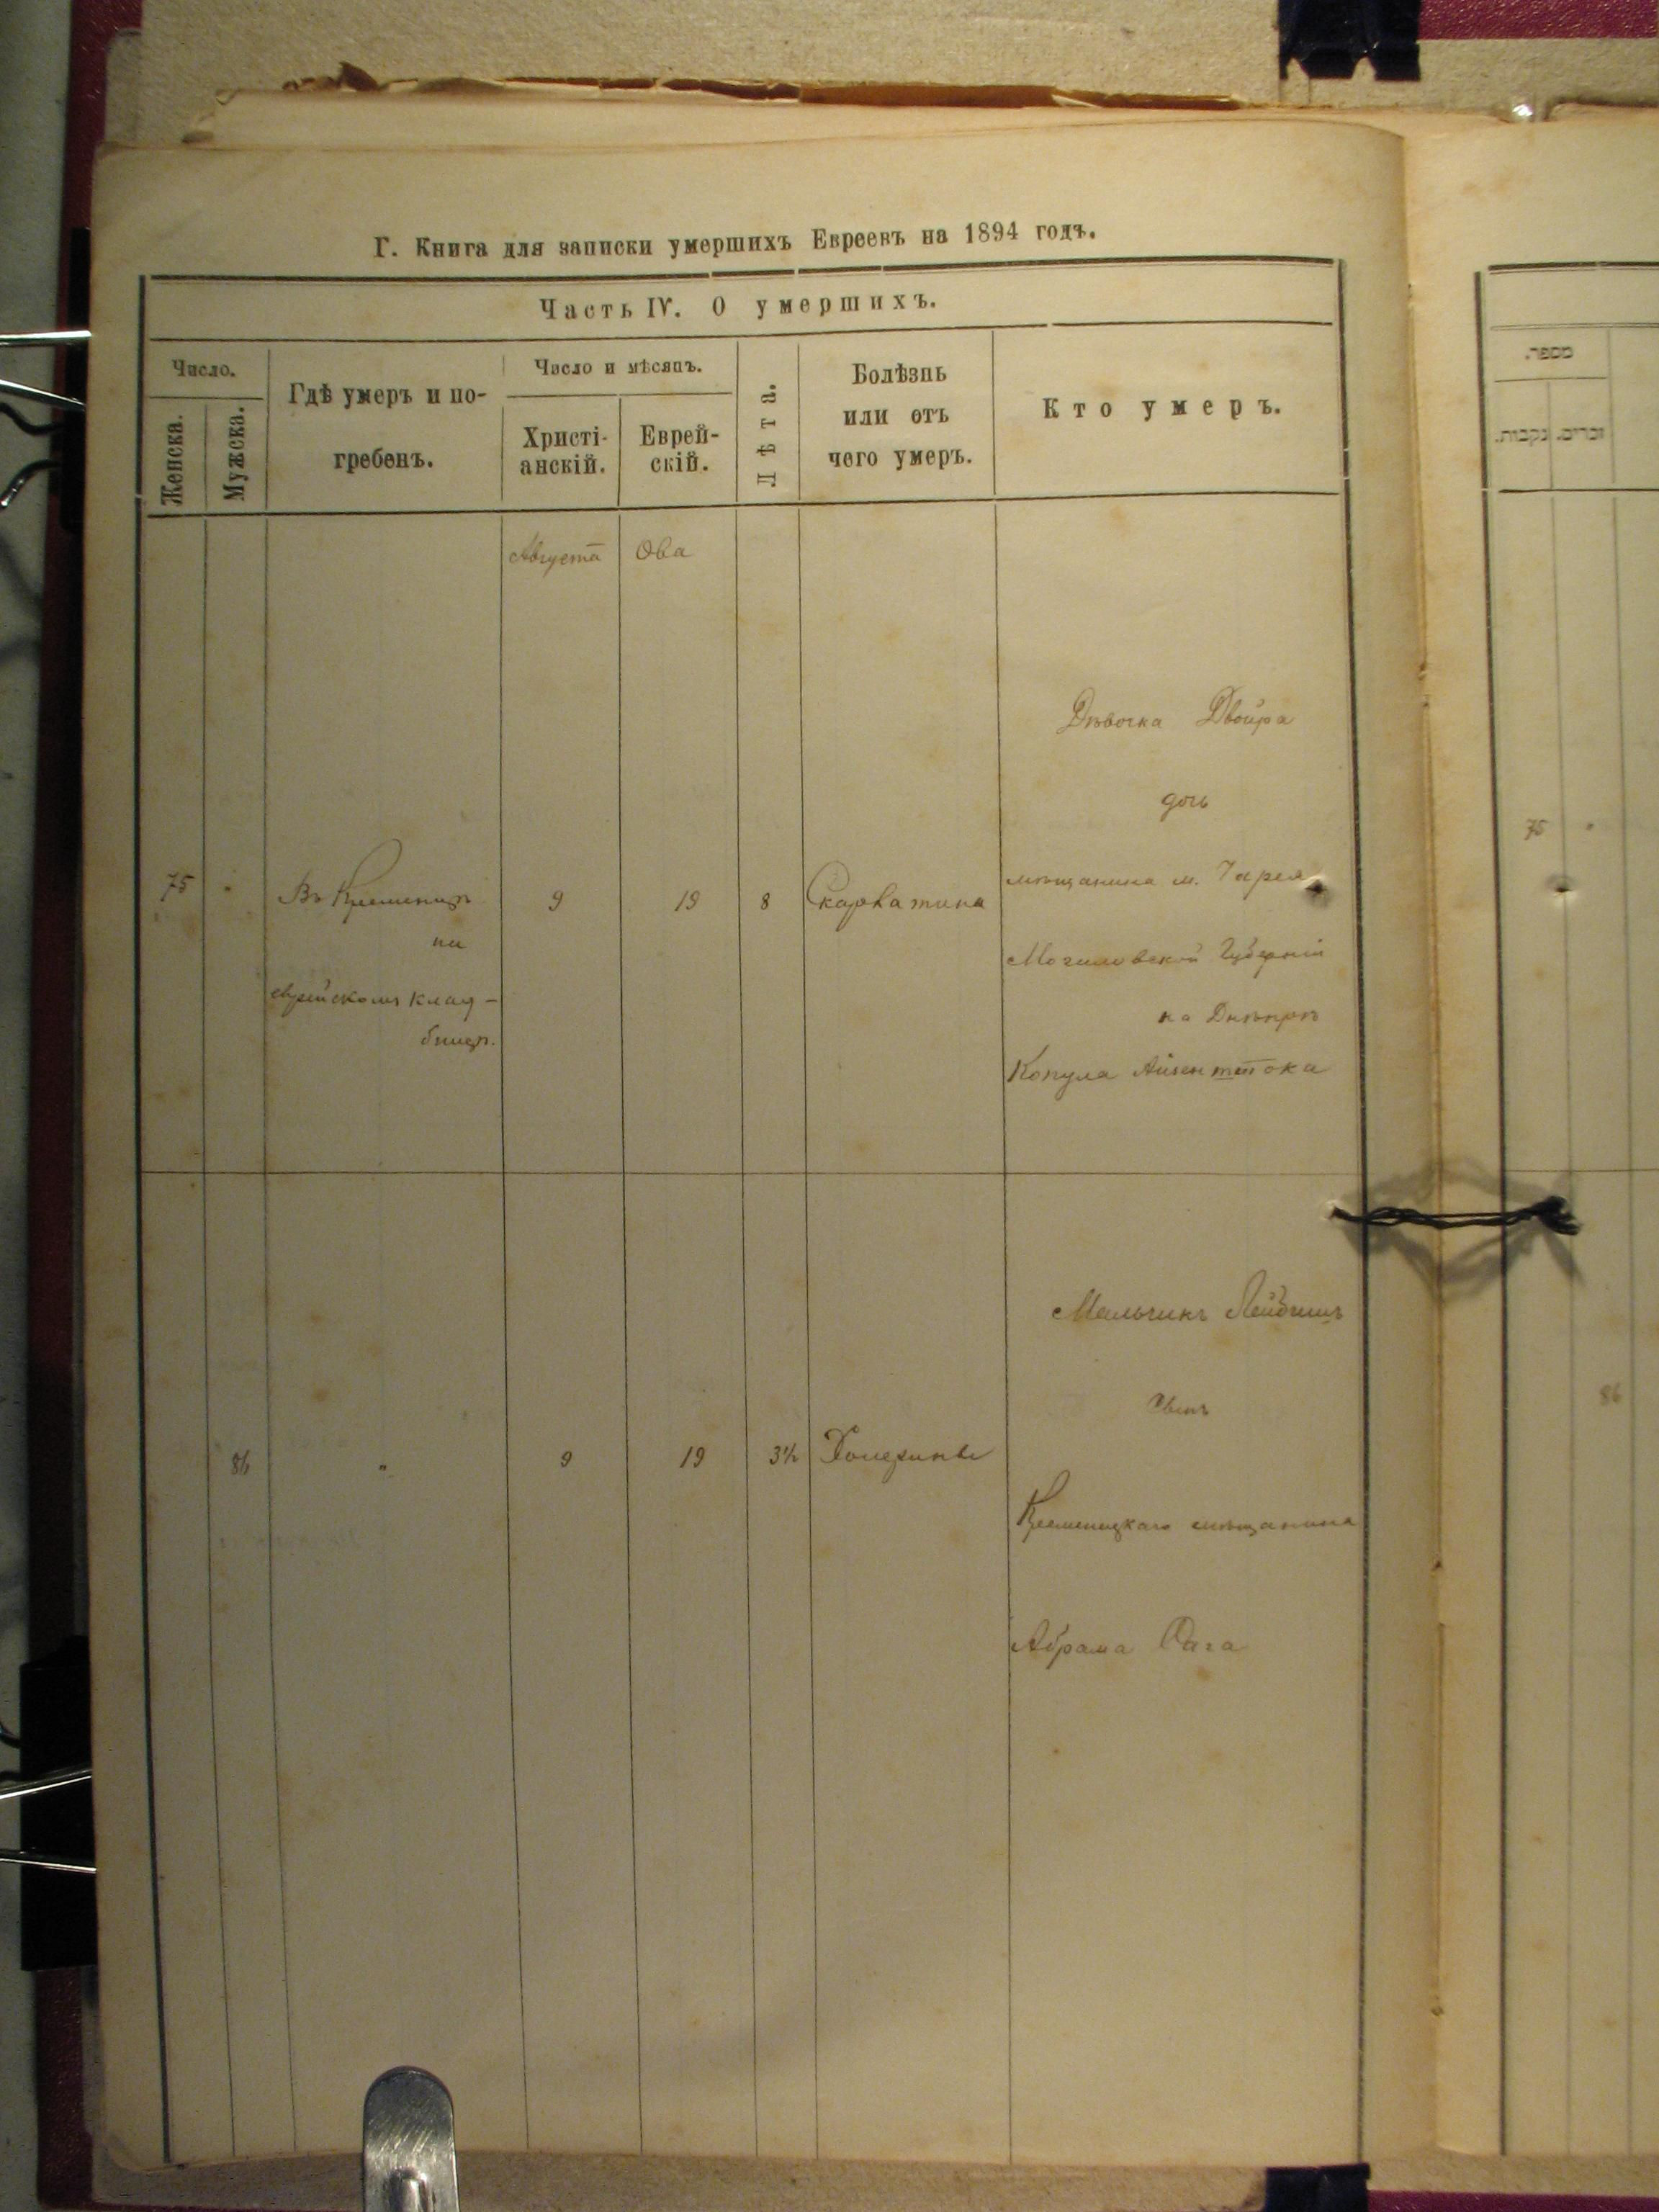 Г. Книга для записки умершихъ Евреевъ на 1894 годъ.
Часть IV. О умершихъ.
Число.
Женска.
Мужска.
Гдѣ умеръ и по-
гребенъ.
Число и мѣсяцъ.
Христі-
анскій.
Еврей-
скій.
Лѣта.
Болѣзнь
или отъ
чего умеръ.
Кто умеръ.
מספר.
זכרים.
נקבות.
Августа
Ова
Дѣвочка Двойра
дочь
75
Въ Кременцѣ
на
еврейскомъ клад-
бищѣ.
9
19
8
Скарлатина
мѣщанина м.
Могилевской Губерніи
на Днѣпрѣ
Копула
75
Мальчикъ
сынъ
86
"
9
19
3½
Холерины
Кременецкаго мѣщанина
Абрама
86